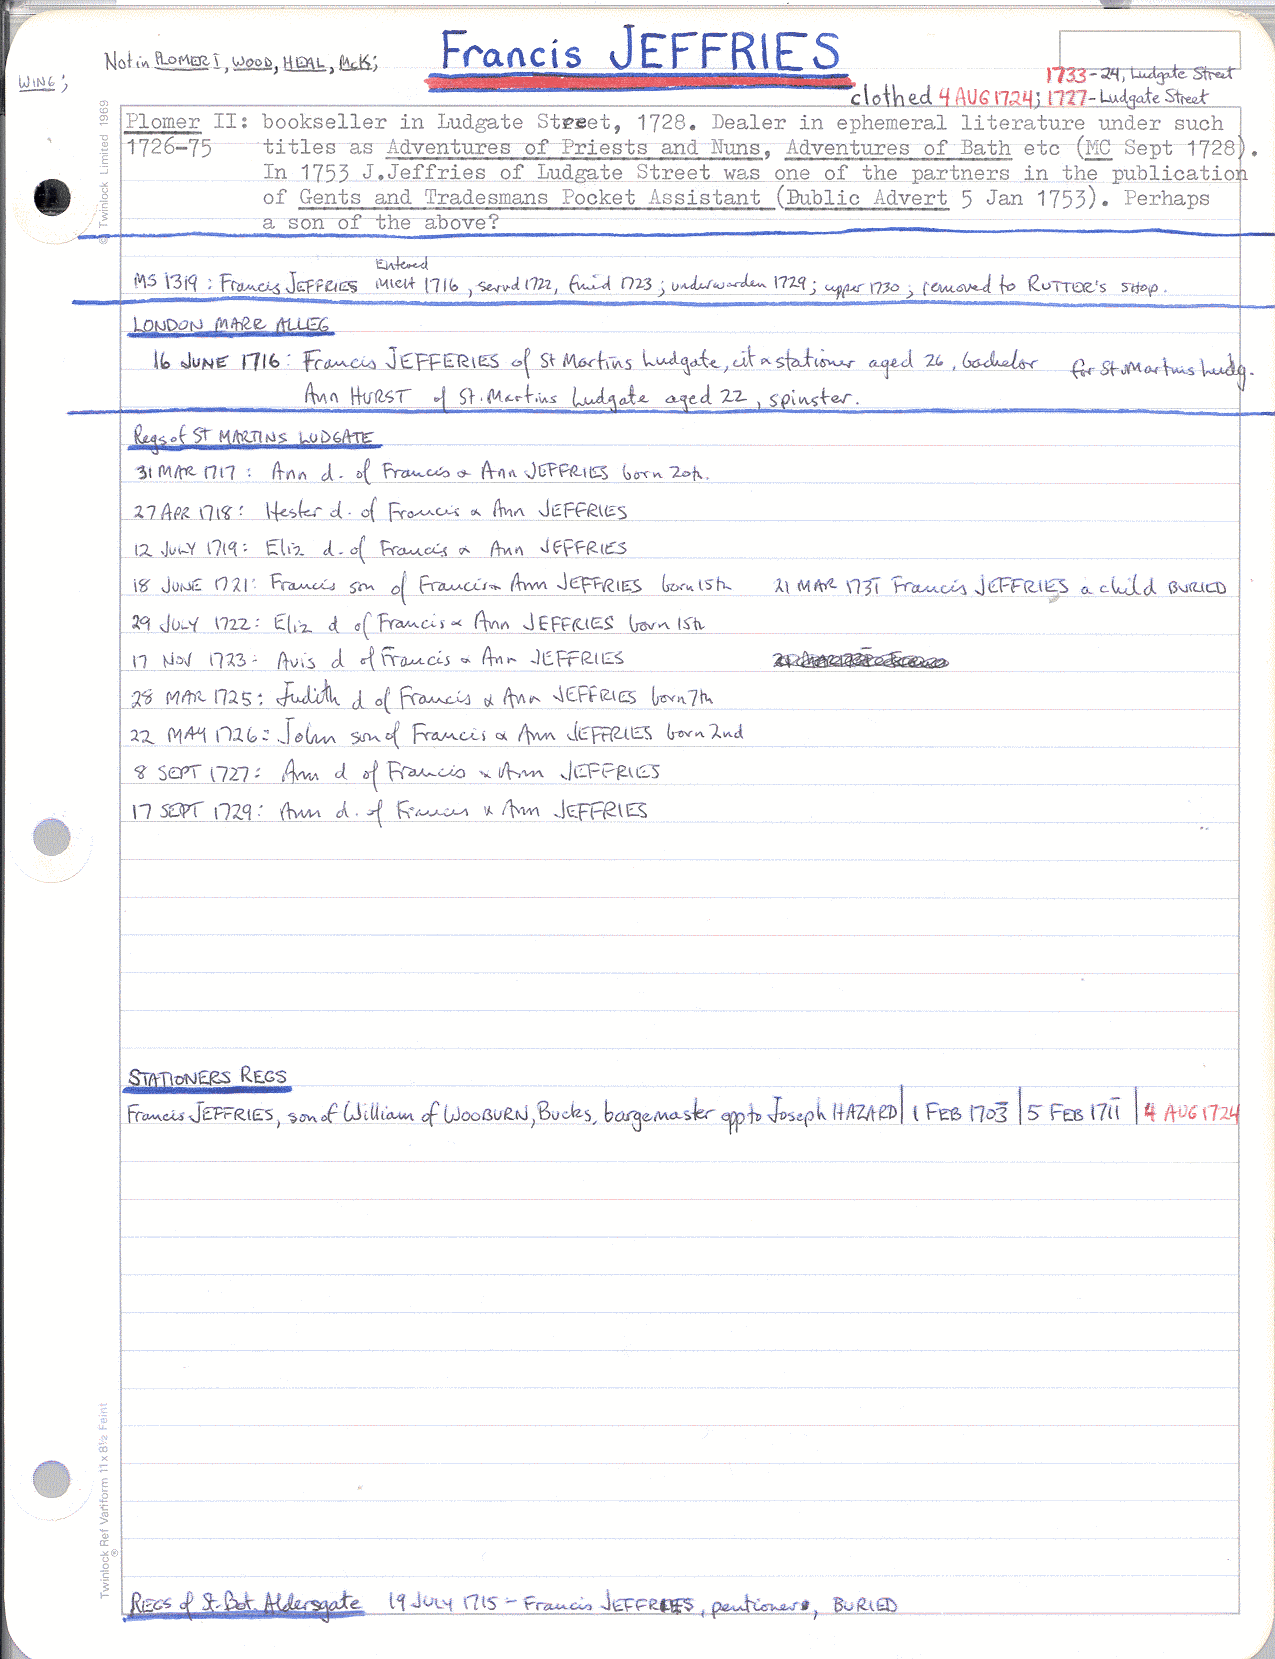 Francis JEFFRIES
Not in PLOMER I, WOOD, HEAL, McK;
WING;
1733-24, Ludgate Street
clothed 4 AUG 1724; 1727-Ludgate Street
Plomer II: bookseller in Ludgate Street, 1728. Dealer in ephemeral literature under such
1726-75 titles as Adventures of Priests and Nuns, Adventures of Bath etc (MC Sept 1728).
In 1753 J.Jeffries of Ludgate Street was one of the partners in the publication
of Gents and Tradesmans Pocket Assistant (Public Advert 5 Jan 1753). Perhaps
a son of the above?
Entered
MS 1319: Francis JEFFRIES MICH 1716, servd 1722, find 1723; underwarden 1729; upper 1730; removed to RUTTER'S SHOP.
LONDON MARR ALLEG
16 JUNE 1716: Francis JEFFERIES of St Martins Ludgate, cit & stationer aged 26, bachelor for St Martins Ludg.
Ann HURST of St. Martins Ludgate aged 22, spinster.
Regs of ST MARTINS LUDGATE
31 MAR 1717: Ann d. of Francis & Ann JEFFRIES born 20th.
27 APR 1718: Hester d. of Francis & Ann JEFFRIES
12 JULY 1719: Eliz d. of Francis & Ann JEFFRIES
18 JUNE 1721: Francis son of Francis & Ann JEFFRIES born 15th 21 MAR 1731 Francis JEFFRIES a child BURIED
29 JULY 1722: Eliz d of Francis & Ann JEFFRIES born 15th
17 NOV 1723: Avis d of Francis & Ann JEFFRIES
28 MAR 1725: Judith d of Francis & Ann JEFFRIES born 7th
22 MAY 1726: John son of Francis & Ann JEFFRIES born 2nd
8 SEPT 1727: Ann d of Francis & Ann JEFFRIES
17 SEPT 1729: Ann d. of Francis & Ann JEFFRIES
STATIONERS REGS
Francis JEFFRIES, son of William of WOOBURN, Bucks, bargemaster app to Joseph HAZARD | 1 FEB 1703 | 5 FEB 1711 | 4 AUG 1724
REGS of St. Bot. Aldersgate 19 JULY 1715 - Francis JEFFRIES, pentioner, BURIED
© Twinlock Limited 1969
Twinlock Ref Variform 11 x 8½ Faint
®